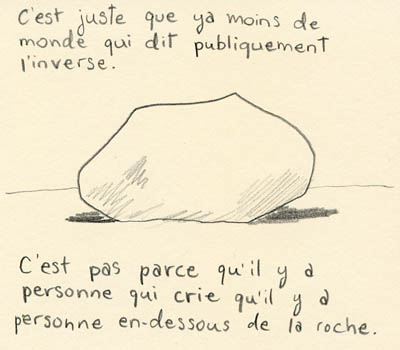 C'est juste que ya moins de
monde qui dit publiquement
l'inverse.
C'est pas parce qu'il y a
personne qui crie qu'il y a
personne en-dessous de la roche.